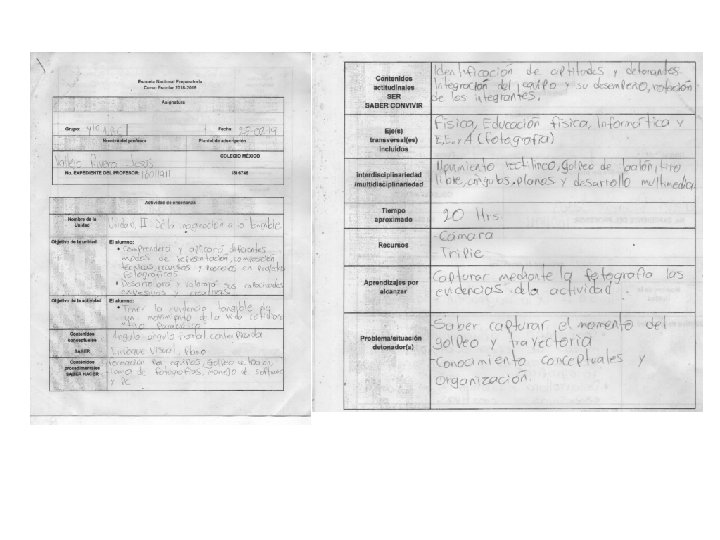 Escuela Nacional Preparatoria
Curso Escolar 2018-2019
Asignatura
Grupo:
Fecha:
Nombre del profesor
Plantel de adscripción
Vallejo Rivero Jesus
COLEGIO MÉXICO
No. EXPEDIENTE DEL PROFESOR:
Actividad de enseñanza
Nombre de la Unidad
Unidad II De la imaginación a lo tangible
Objetivo de la unidad
El alumno:
• Comprenderá y aplicará diferentes
modos de representación, composición
técnicas, recursos y
fotográficos
• Desarrollará y
expresivas y creativas
Objetivo de la actividad
El alumno:
• Tener la evidencia tangible de
un movimiento de la vida cotidiana
Contenidos conceptuales
SABER
Angulo,
Lenguaje Visual,
Contenidos procedimentales
SABER HACER
Formación de equipos, Golpeo de balón,
toma de fotografías, manejo de software
y PC
Contenidos actitudinales
SER
SABER CONVIVIR
Identificación de aptitudes y detonantes
Integración del equipo y su desempeño, rotación
de los integrantes.
Eje(s) transversal(es) incluidos
Física, Educación física, Informática y
(fotografía)
Interdisciplinariedad
/multidisciplinariedad
Movimiento rectilineo, golpeo de balón, tiro
libre, angulos, planos y desarrollo multimedia.
Tiempo aproximado
20 Hrs
Recursos
-Camara
-Tripie
Aprendizajes por alcanzar
Capturar mediante la fotografía las
evidencias de la actividad.
Problema/situación detonador(a)
-Saber capturar el momento del
golpeo y trayectoria
-Conocimiento conceptuales y
organización.